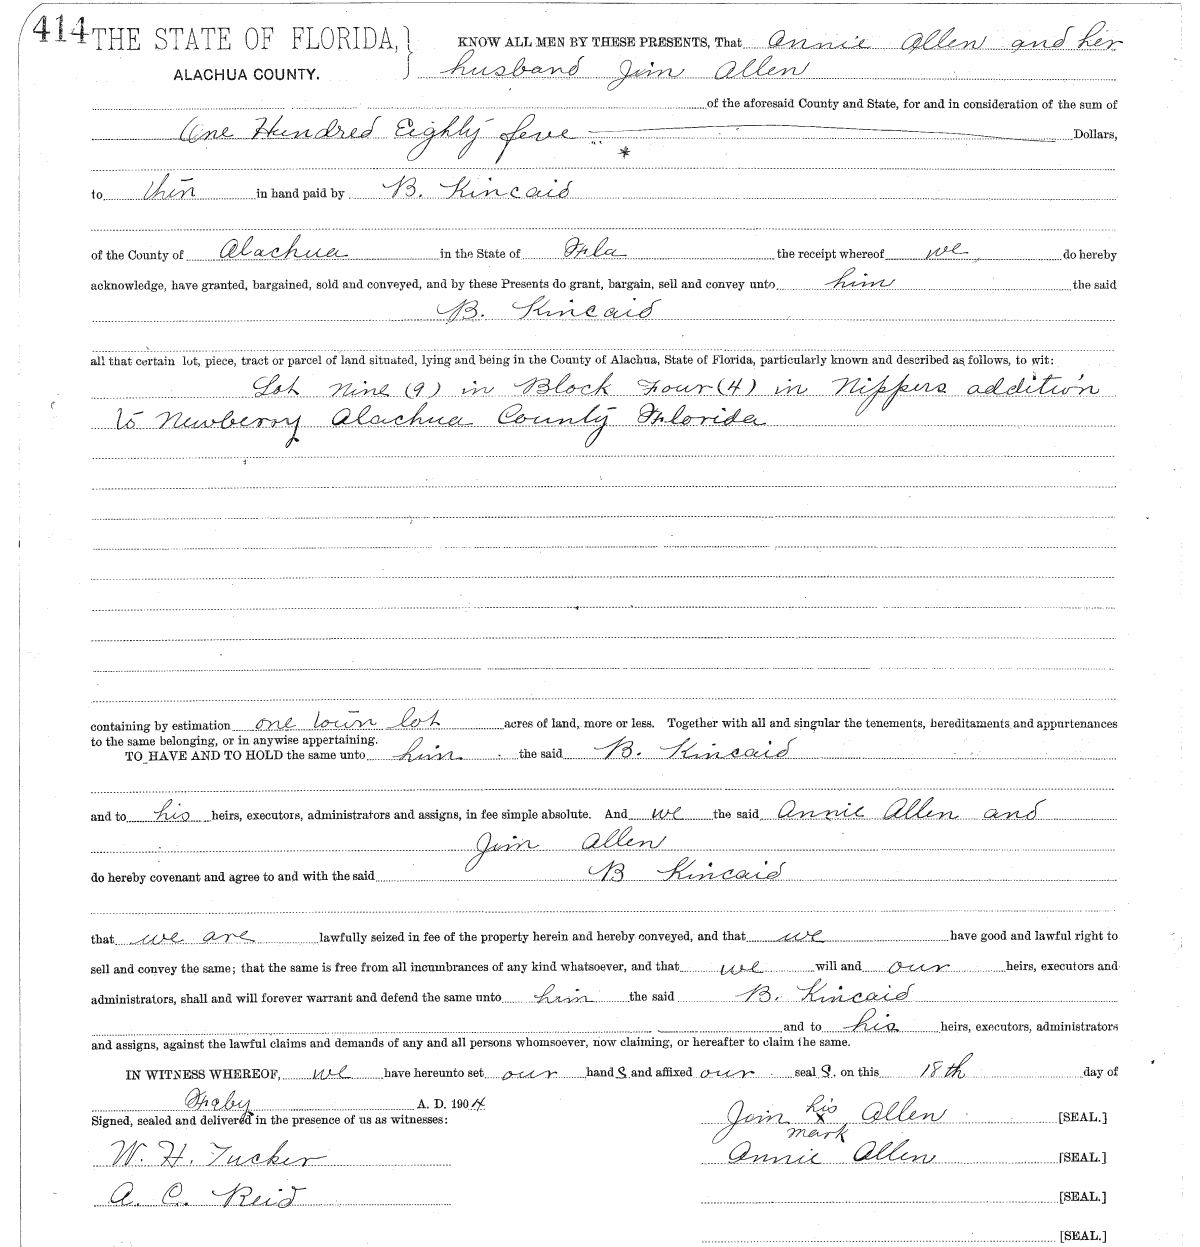 414 THE STATE OF FLORIDA,} KNOW ALL MEN BY THESE PRESENTS, That Annie Allen and her
ALACHUA COUNTY. husband Jim Allen
of the aforesaid County and State, for and in consideration of the sum of
One Hundred Eighty five Dollars,
to them in hand paid by B. Kincaid
of the County of Alachua in the State of Fla the receipt whereof we do hereby
acknowledge, have granted, bargained, sold and conveyed, and by these Presents do grant, bargain, sell and convey unto him the said
B. Kincaid
all that certain lot, piece, tract or parcel of land situated, lying and being in the County of Alachua, State of Florida, particularly known and described as follows, to wit:
Lot Nine (9) in Block Four (4) in Nippers addition
to Newberry Alachua County Florida
containing by estimation one town lot acres of land, more or less. Together with all and singular the tenements, hereditaments and appurtenances
to the same belonging, or in anywise appertaining.
TO HAVE AND TO HOLD the same unto him the said B. Kincaid
and to his heirs, executors, administrators and assigns, in fee simple absolute. And we the said Annie Allen and
Jim Allen
do hereby covenant and agree to and with the said B Kincaid
that we are lawfully seized in fee of the property herein and hereby conveyed, and that we have good and lawful right to
sell and convey the same; that the same is free from all incumbrances of any kind whatsoever, and that we will and our heirs, executors and
administrators, shall and will forever warrant and defend the same unto him the said B. Kincaid
and to his heirs, executors, administrators
and assigns, against the lawful claims and demands of any and all persons whomsoever, now claiming, or hereafter to claim the same.
IN WITNESS WHEREOF, we have hereunto set our hands and affixed our seals. on this 18th day of
Feby A. D. 1904
Signed, sealed and delivered in the presence of us as witnesses:
Jim his x mark Allen [SEAL.]
W. H. Tucker Annie Allen [SEAL.]
A. C. Reid [SEAL.]
[SEAL.]